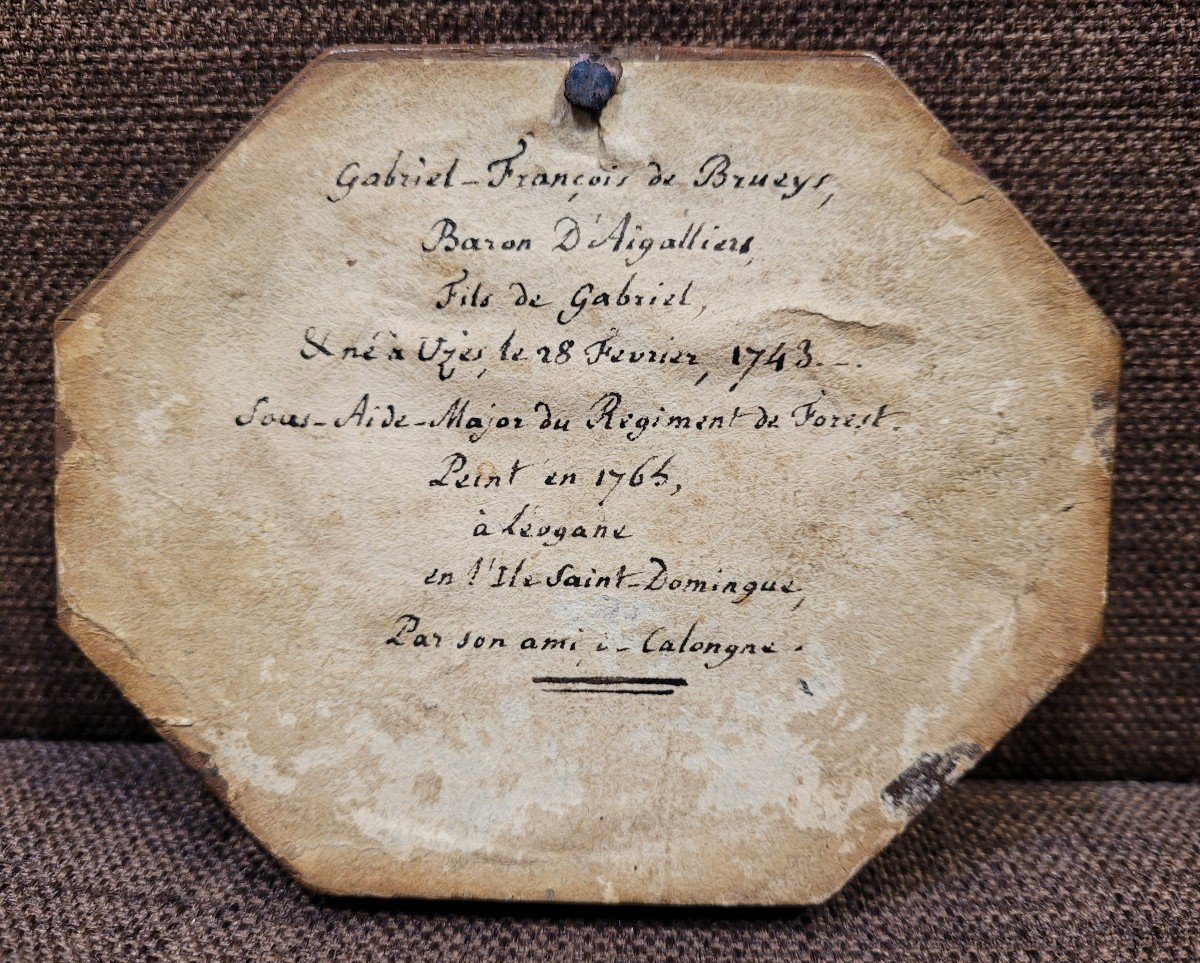 Gabriel-François de Brueys,
Baron D'Aigalliers,
Fils de Gabriel,
& né à Uzes, le 28 Fevrier, 1743.-.
Sous-Aide-Major du Regiment de Forest.
Peint en 1765,
à Léogane
en l'Ile Saint-Domingue,
Par son ami Calongne.